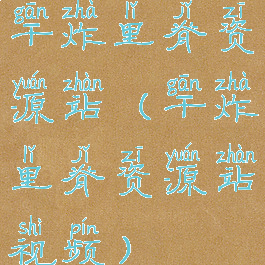 gān zhà lǐ jǐ zī
干炸里脊资
yuán zhàn gān zhà
源站（干炸
lǐ jǐ zī yuán zhàn
里脊资源站
shì pín
视频）